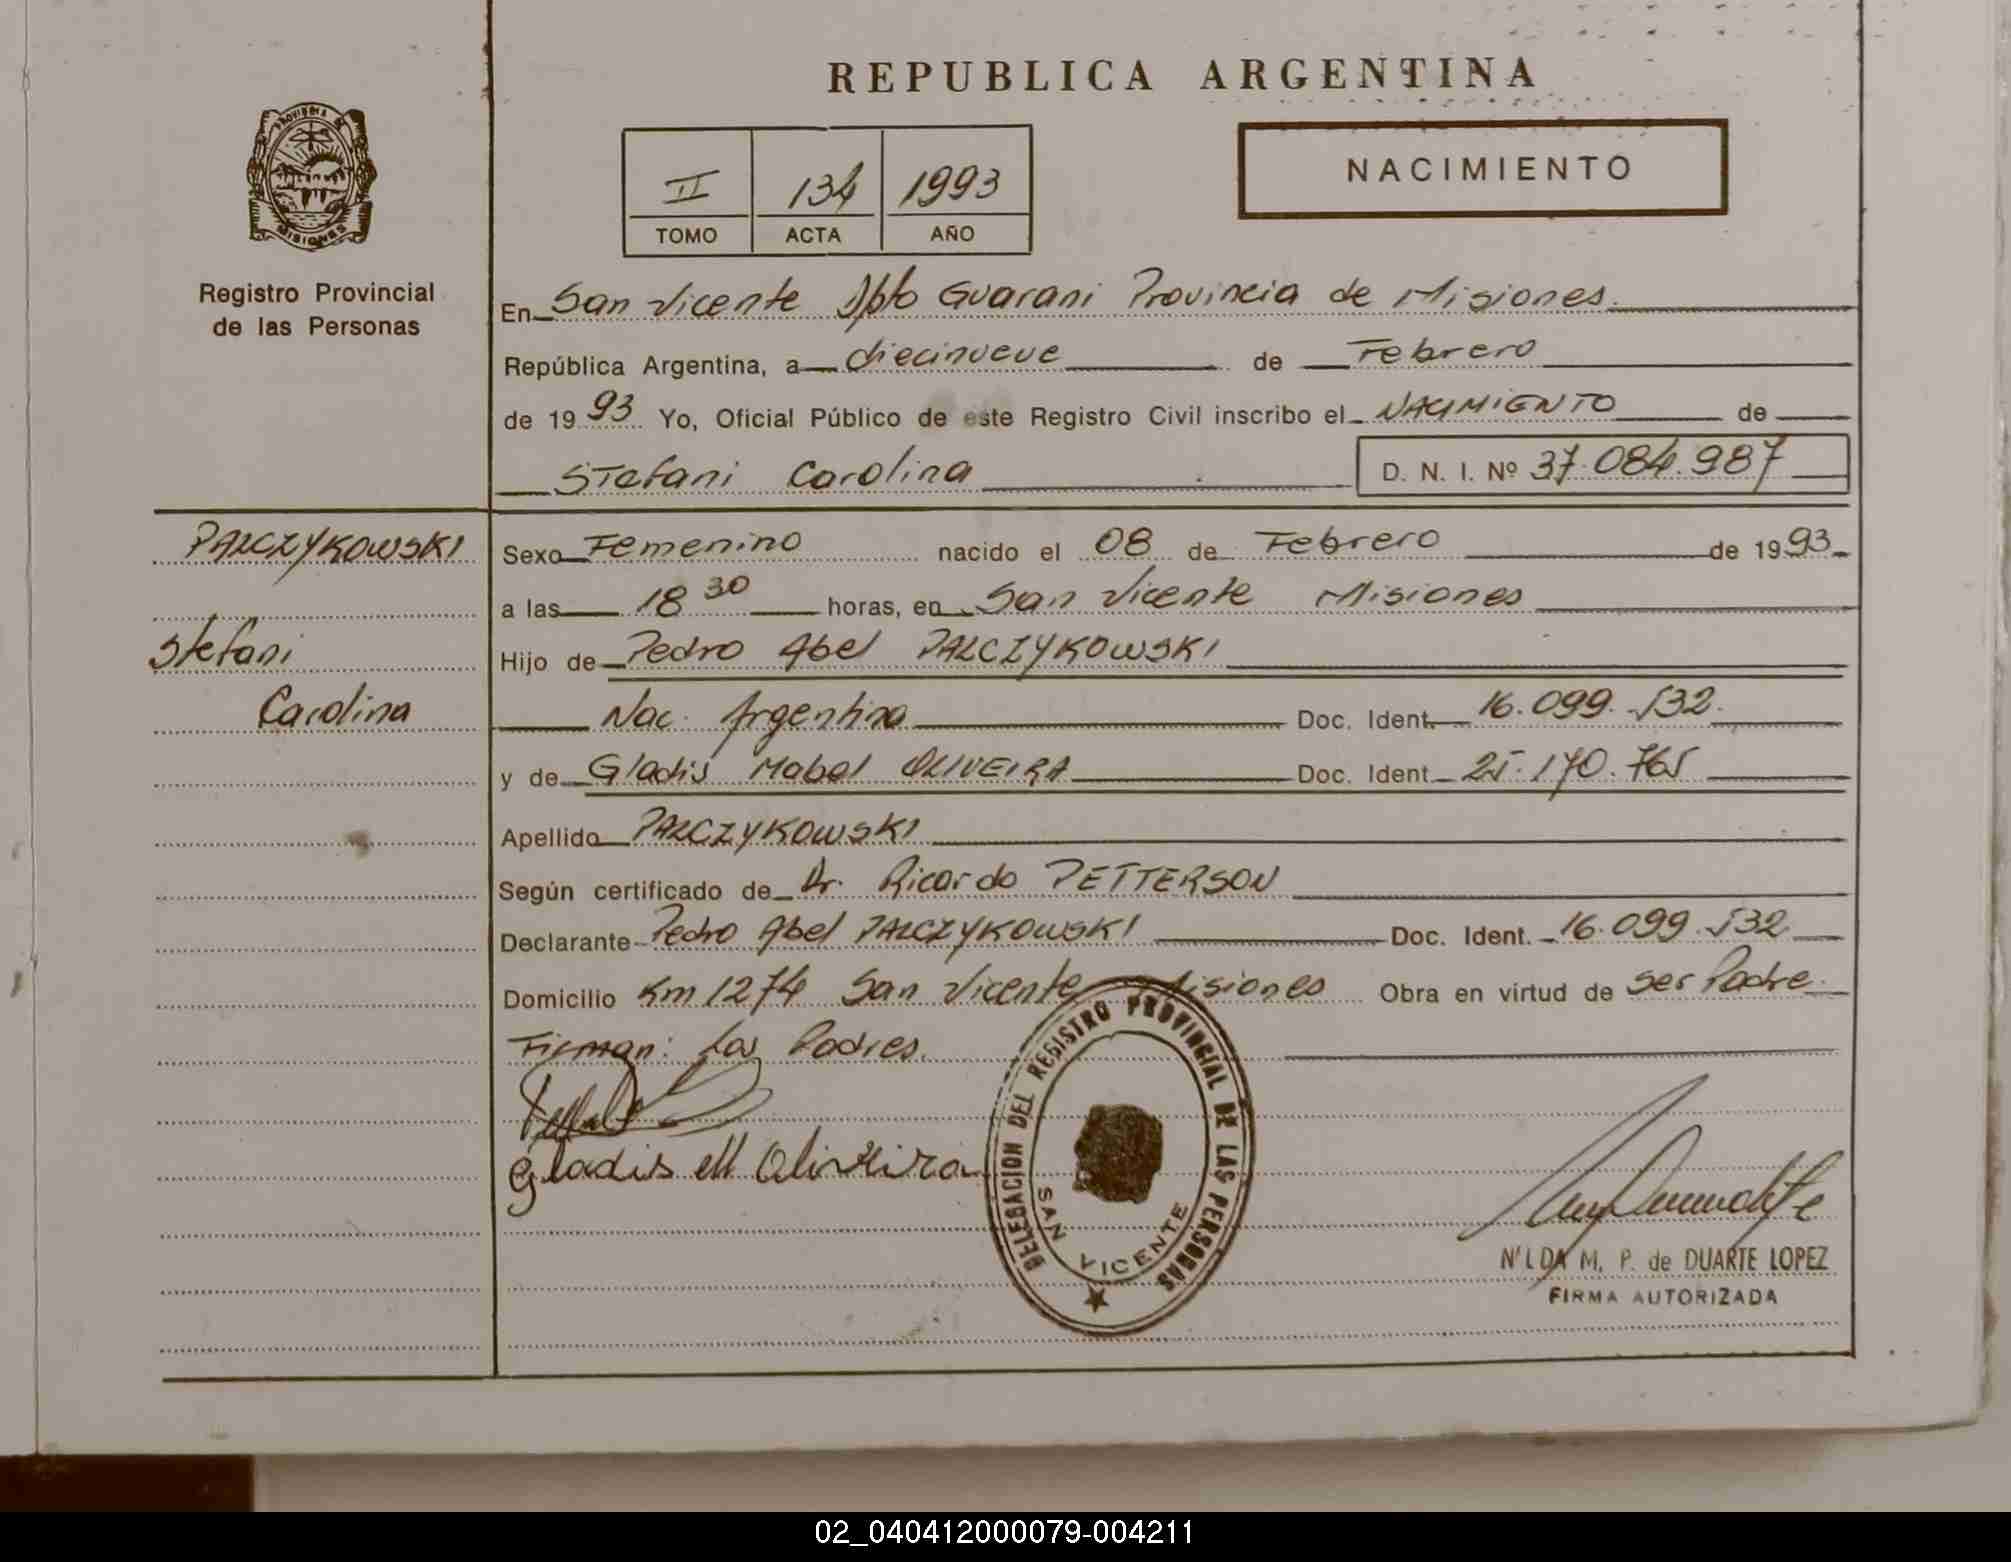 REPUBLICA ARGENTINA
PROVINCIA DE
MISIONES
Registro Provincial
de las Personas
II 134 1993
TOMO ACTA AÑO
NACIMIENTO
En San Vicente Dpto Guarani Provincia de Misiones.
República Argentina, a diecinueve de Febrero
de 19 93 Yo, Oficial Público de este Registro Civil inscribo el NACIMIENTO de
Stefani Carolina D. N. I. Nº 37.084.987
PALCZYKOWSKI
Stefani
Carolina
Sexo Femenino nacido el 08 de Febrero de 19 93
a las 18 30 horas, en San Vicente Misiones
Hijo de Pedro Abel PALCZYKOWSKI
Nac. Argentina Doc. Ident. 16.099.532.
y de Gladis Mabel OLIVEIRA Doc. Ident. 25.170.765
Apellido PALCZYKOWSKI
Según certificado de Dr. Ricardo PETTERSON
Declarante Pedro Abel PALCZYKOWSKI Doc. Ident. 16.099.532
Domicilio Km 1274 San Vicente Misiones Obra en virtud de ser Padre.
Firman: Los Padres.
Gladis M Oliveira
DELEGACION DEL REGISTRO PROVINCIAL DE LAS PERSONAS
SAN VICENTE
NILDA M. P. de DUARTE LOPEZ
FIRMA AUTORIZADA
02_040412000079-004211